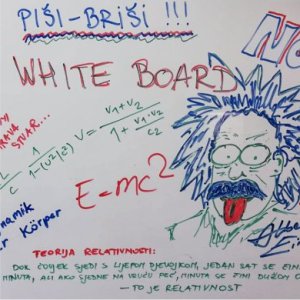 PIŠI-BRIŠI !!!
WHITE BOARD
STVAR...
V = (V1+V2) / (1 + (V1·V2)/C2)
E=mc2
Körper
TEORIJA RELATIVNOSTI:
DOK ČOVJEK SJEDI S LIJEPOM DJEVOJKOM, JEDAN SAT SE ČINI
MINUTA, ALI AKO SJEDNE NA VRUĆU PEĆ, MINUTA SE ČINI DUŽOM O
— TO JE RELATIVNOST